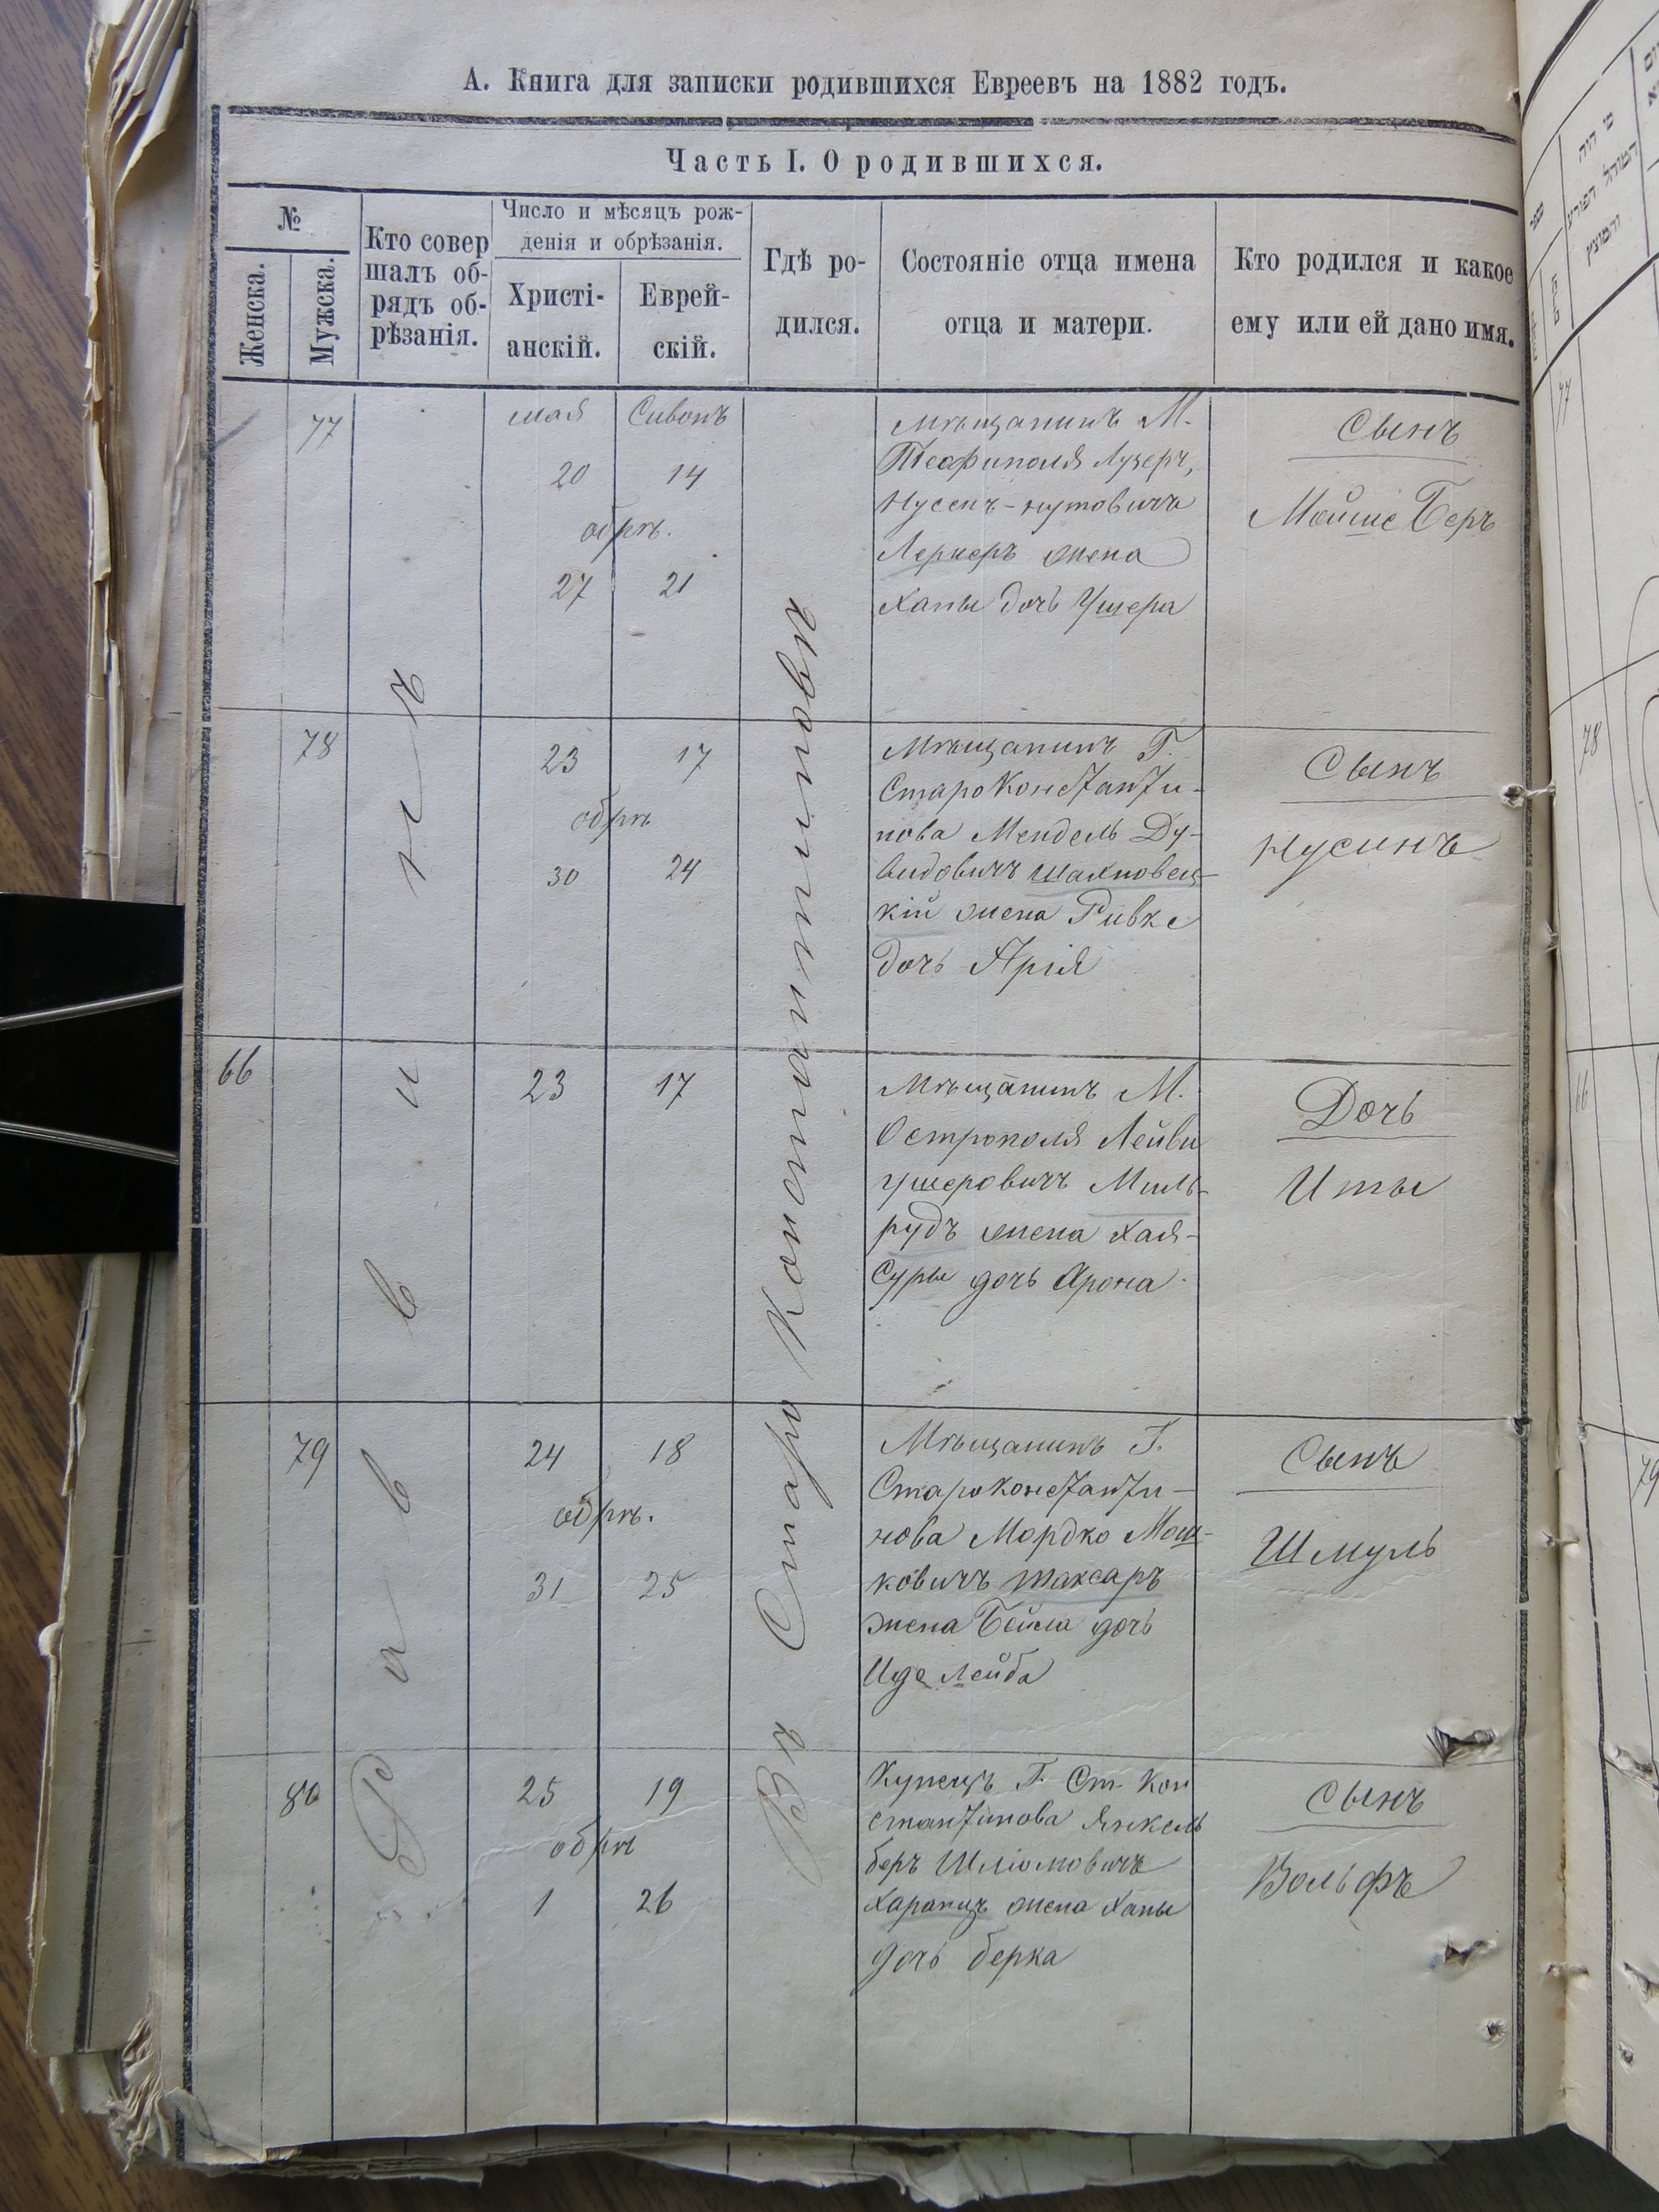 А. Книга для записки родившихся Евреевъ на 1882 годъ.
Часть I. О родившихся.
№
Женска.
Мужска.
Кто совер
шалъ об-
рядъ об-
рѣзанія.
Число и мѣсяцъ рож-
денія и обрѣзанія.
Христі-
анскій.
Еврей-
скій.
Гдѣ ро-
дился.
Состояніе отца имена
отца и матери.
Кто родился и какое
ему или ей дано имя.
Раввинъ
Въ Старо Константиновѣ
77
мая Сивонъ
20 14
обрѣ.
27 21
Мѣщанинъ М.
Теофиполя Лузеръ,
Нусенъ-нутовичъ
Лернеръ жена
Ханы дочь Ушера
Сынъ
Мойше Беръ
78
23 17
обрѣ
30 24
Мѣщанинъ Г.
СтароКонстанти-
нова Мендель Ду-
видовичъ Шахновец-
кій жена Ривке
дочь Арія
Сынъ
Нусинъ
66
23 17
Мѣщанинъ М.
Острополя Лейви
Ушеровичъ Миль-
рудъ жена Хая-
Суры дочь Арона.
Дочь
Иты
79
24 18
обрѣ.
31 25
Мѣщанинъ Г.
СтароКонстанти-
нова Мордко Мош-
ковичъ Таксаръ
жена Бейла дочь
Иде Лейба
Сынъ
Шмуль
80
25 19
обрѣ
1 26
Купецъ Г. Ст. Кон
стантинова Янкель
беръ Шліомовичъ
жена Ханы
дочь берка
Сынъ
Вольфъ
77
78
66
79